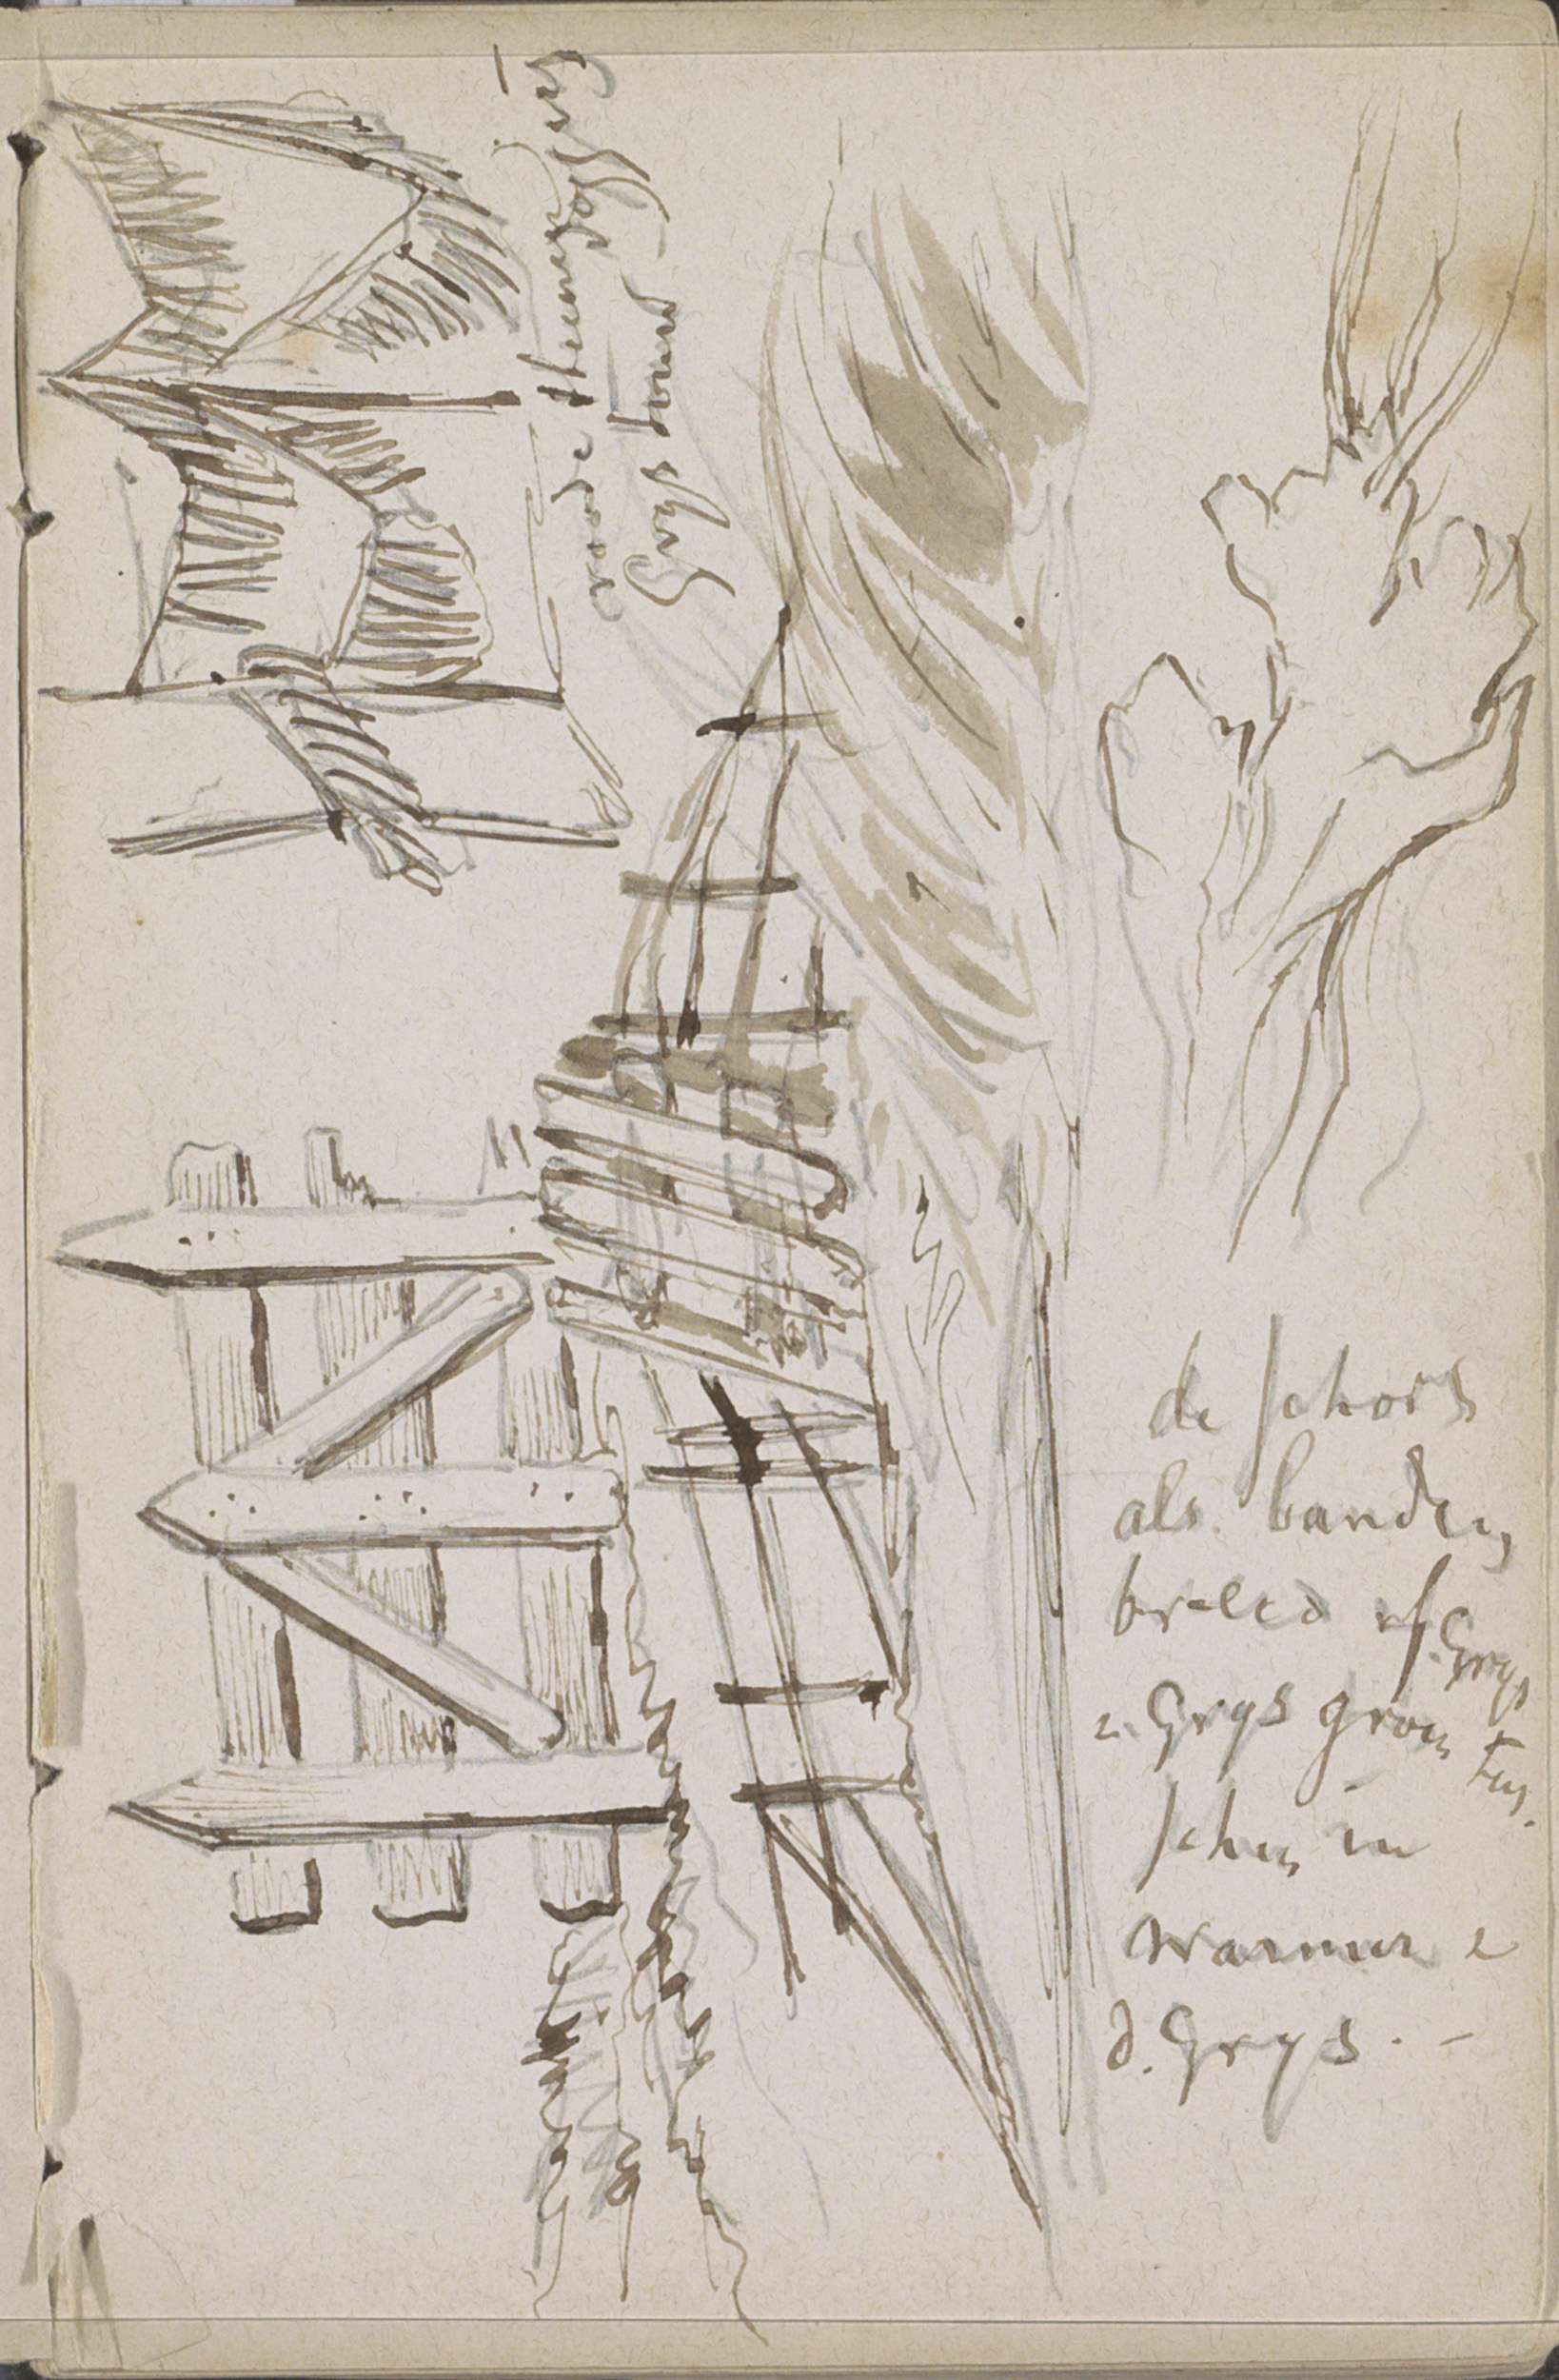 roode steenen dof grijs
Grijs hout —
de schors
als banden
breed of Grys
z. Grys groen
tus.
schen in
warmer z
d. Grys. –